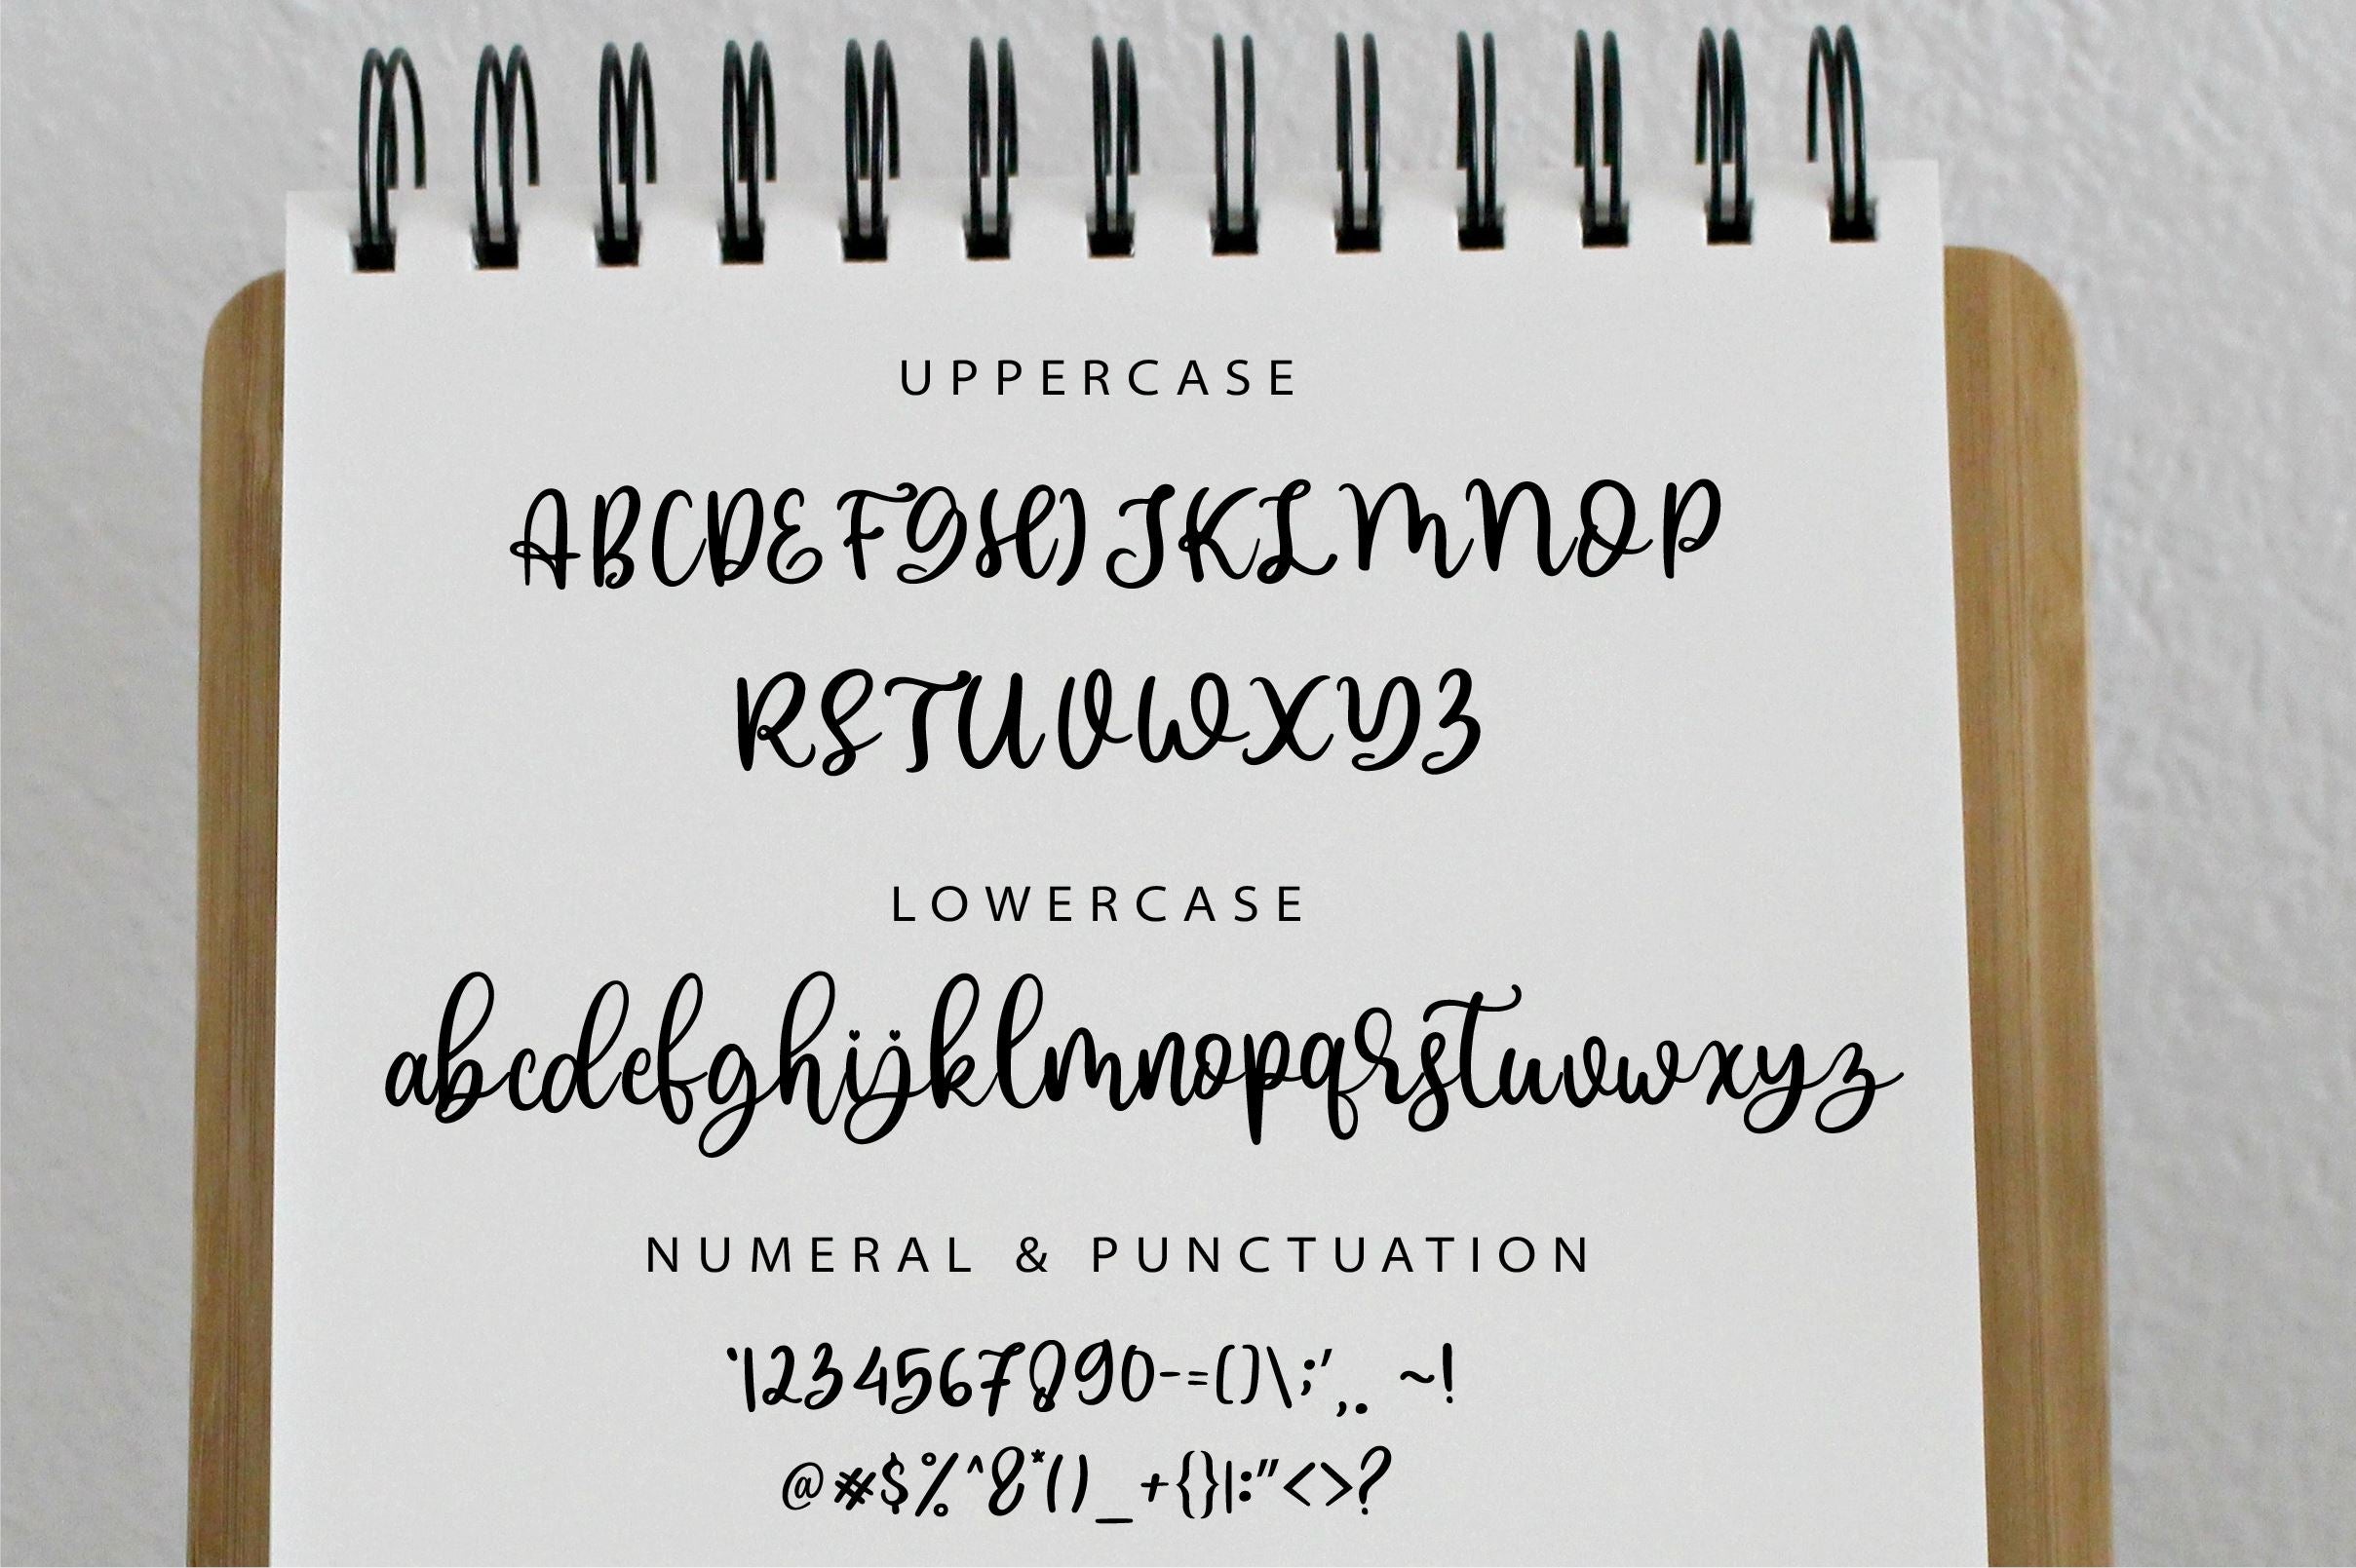 UPPERCASE
ABCDEFGHIJKLMNOP
RSTUVWXYZ
LOWERCASE
abcdefghijklmnopqrstuvwxyz
NUMERAL & PUNCTUATION
`1234567890-=[]\;',. ~!
@#$%^&*()_+{}|:"<>?